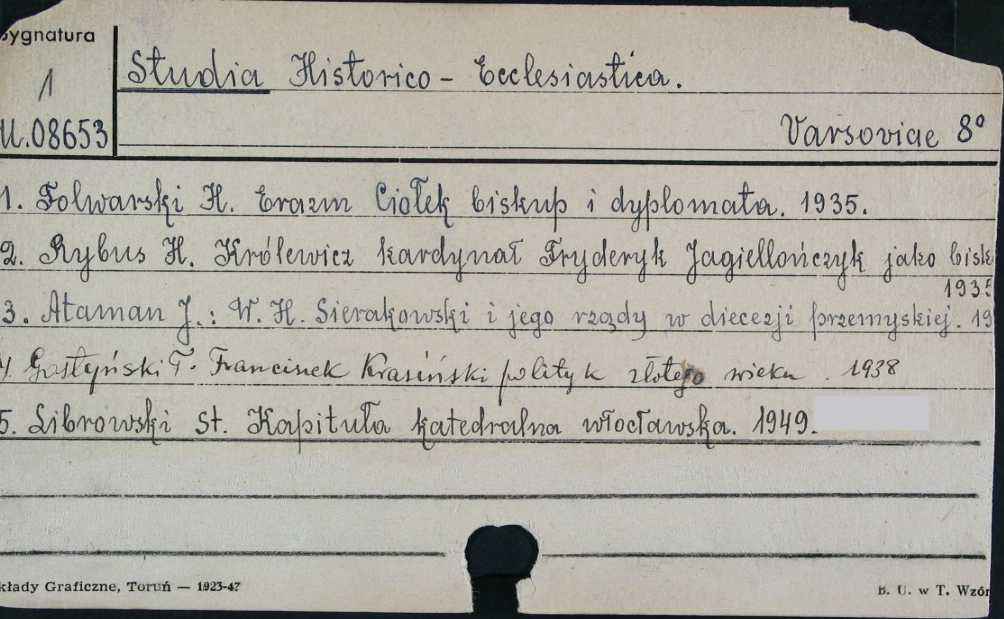 Sygnatura
1
U.08653
Studia Historico - Ecclesiastica.
Varsoviae 8°
1. Folwarski H. Erazm Ciołek biskup i dyplomata. 1935.
2. Rybus H. Królewicz kardynał Fryderyk Jagiellończyk jako bisk
1935
3. Ataman J.: W. H. Sierakowski i jego rządy w diecezji przemyskiej. 19
4. Gostyński T. Franciszek Krasiński polityk złotego wieku. 1938
5. Librowski St. Kapituła katedralna włocławska. 1949.
kłady Graficzne, Toruń — 1923-47
B. U. w T. Wzór